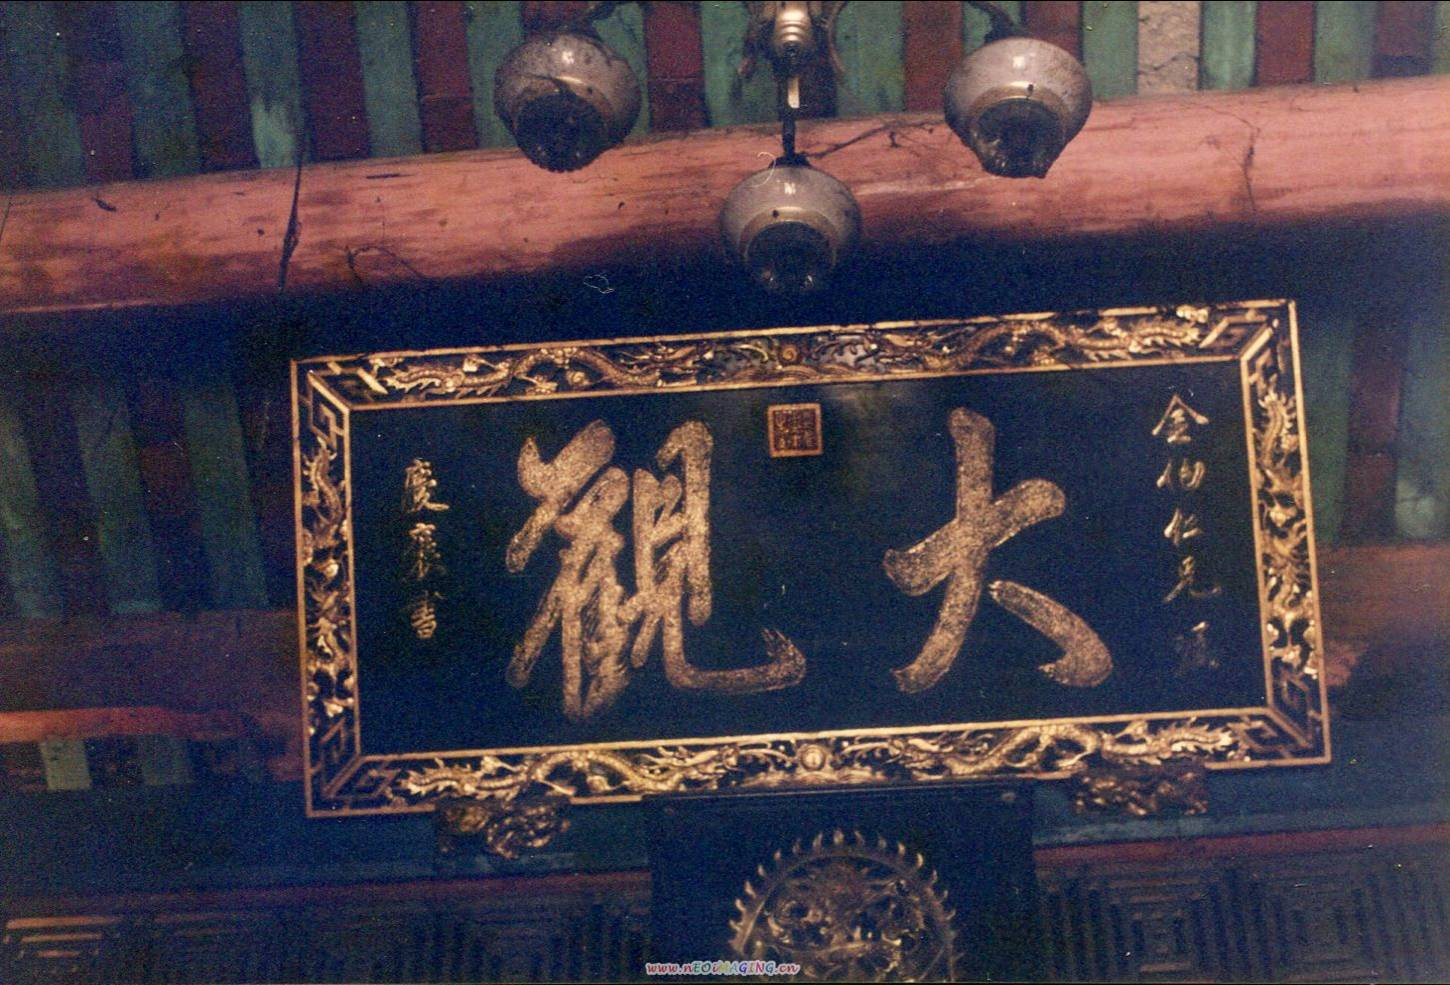 金伯仁兄
大觀
慶寬書
www.nEOiMAGING.cn